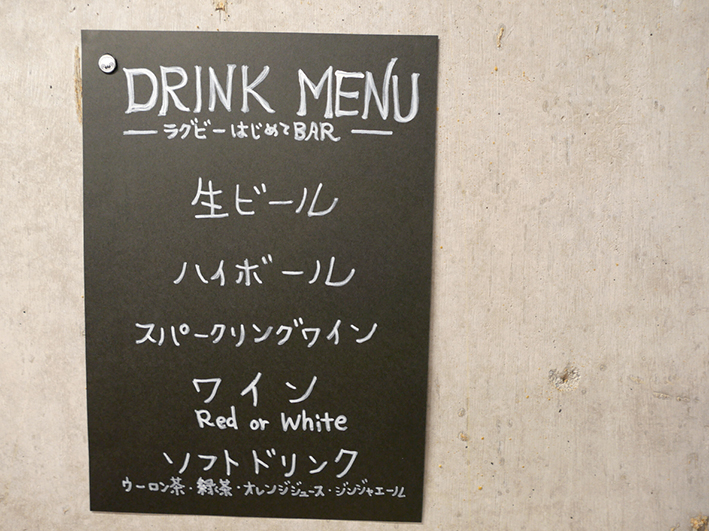 DRINK MENU
ー ラグビーはじめてBAR ー
生ビール
ハイボール
スパークリングワイン
ワイン
Red or White
ソフトドリンク
ウーロン茶・緑茶・オレンジジュース・ジンジャエール